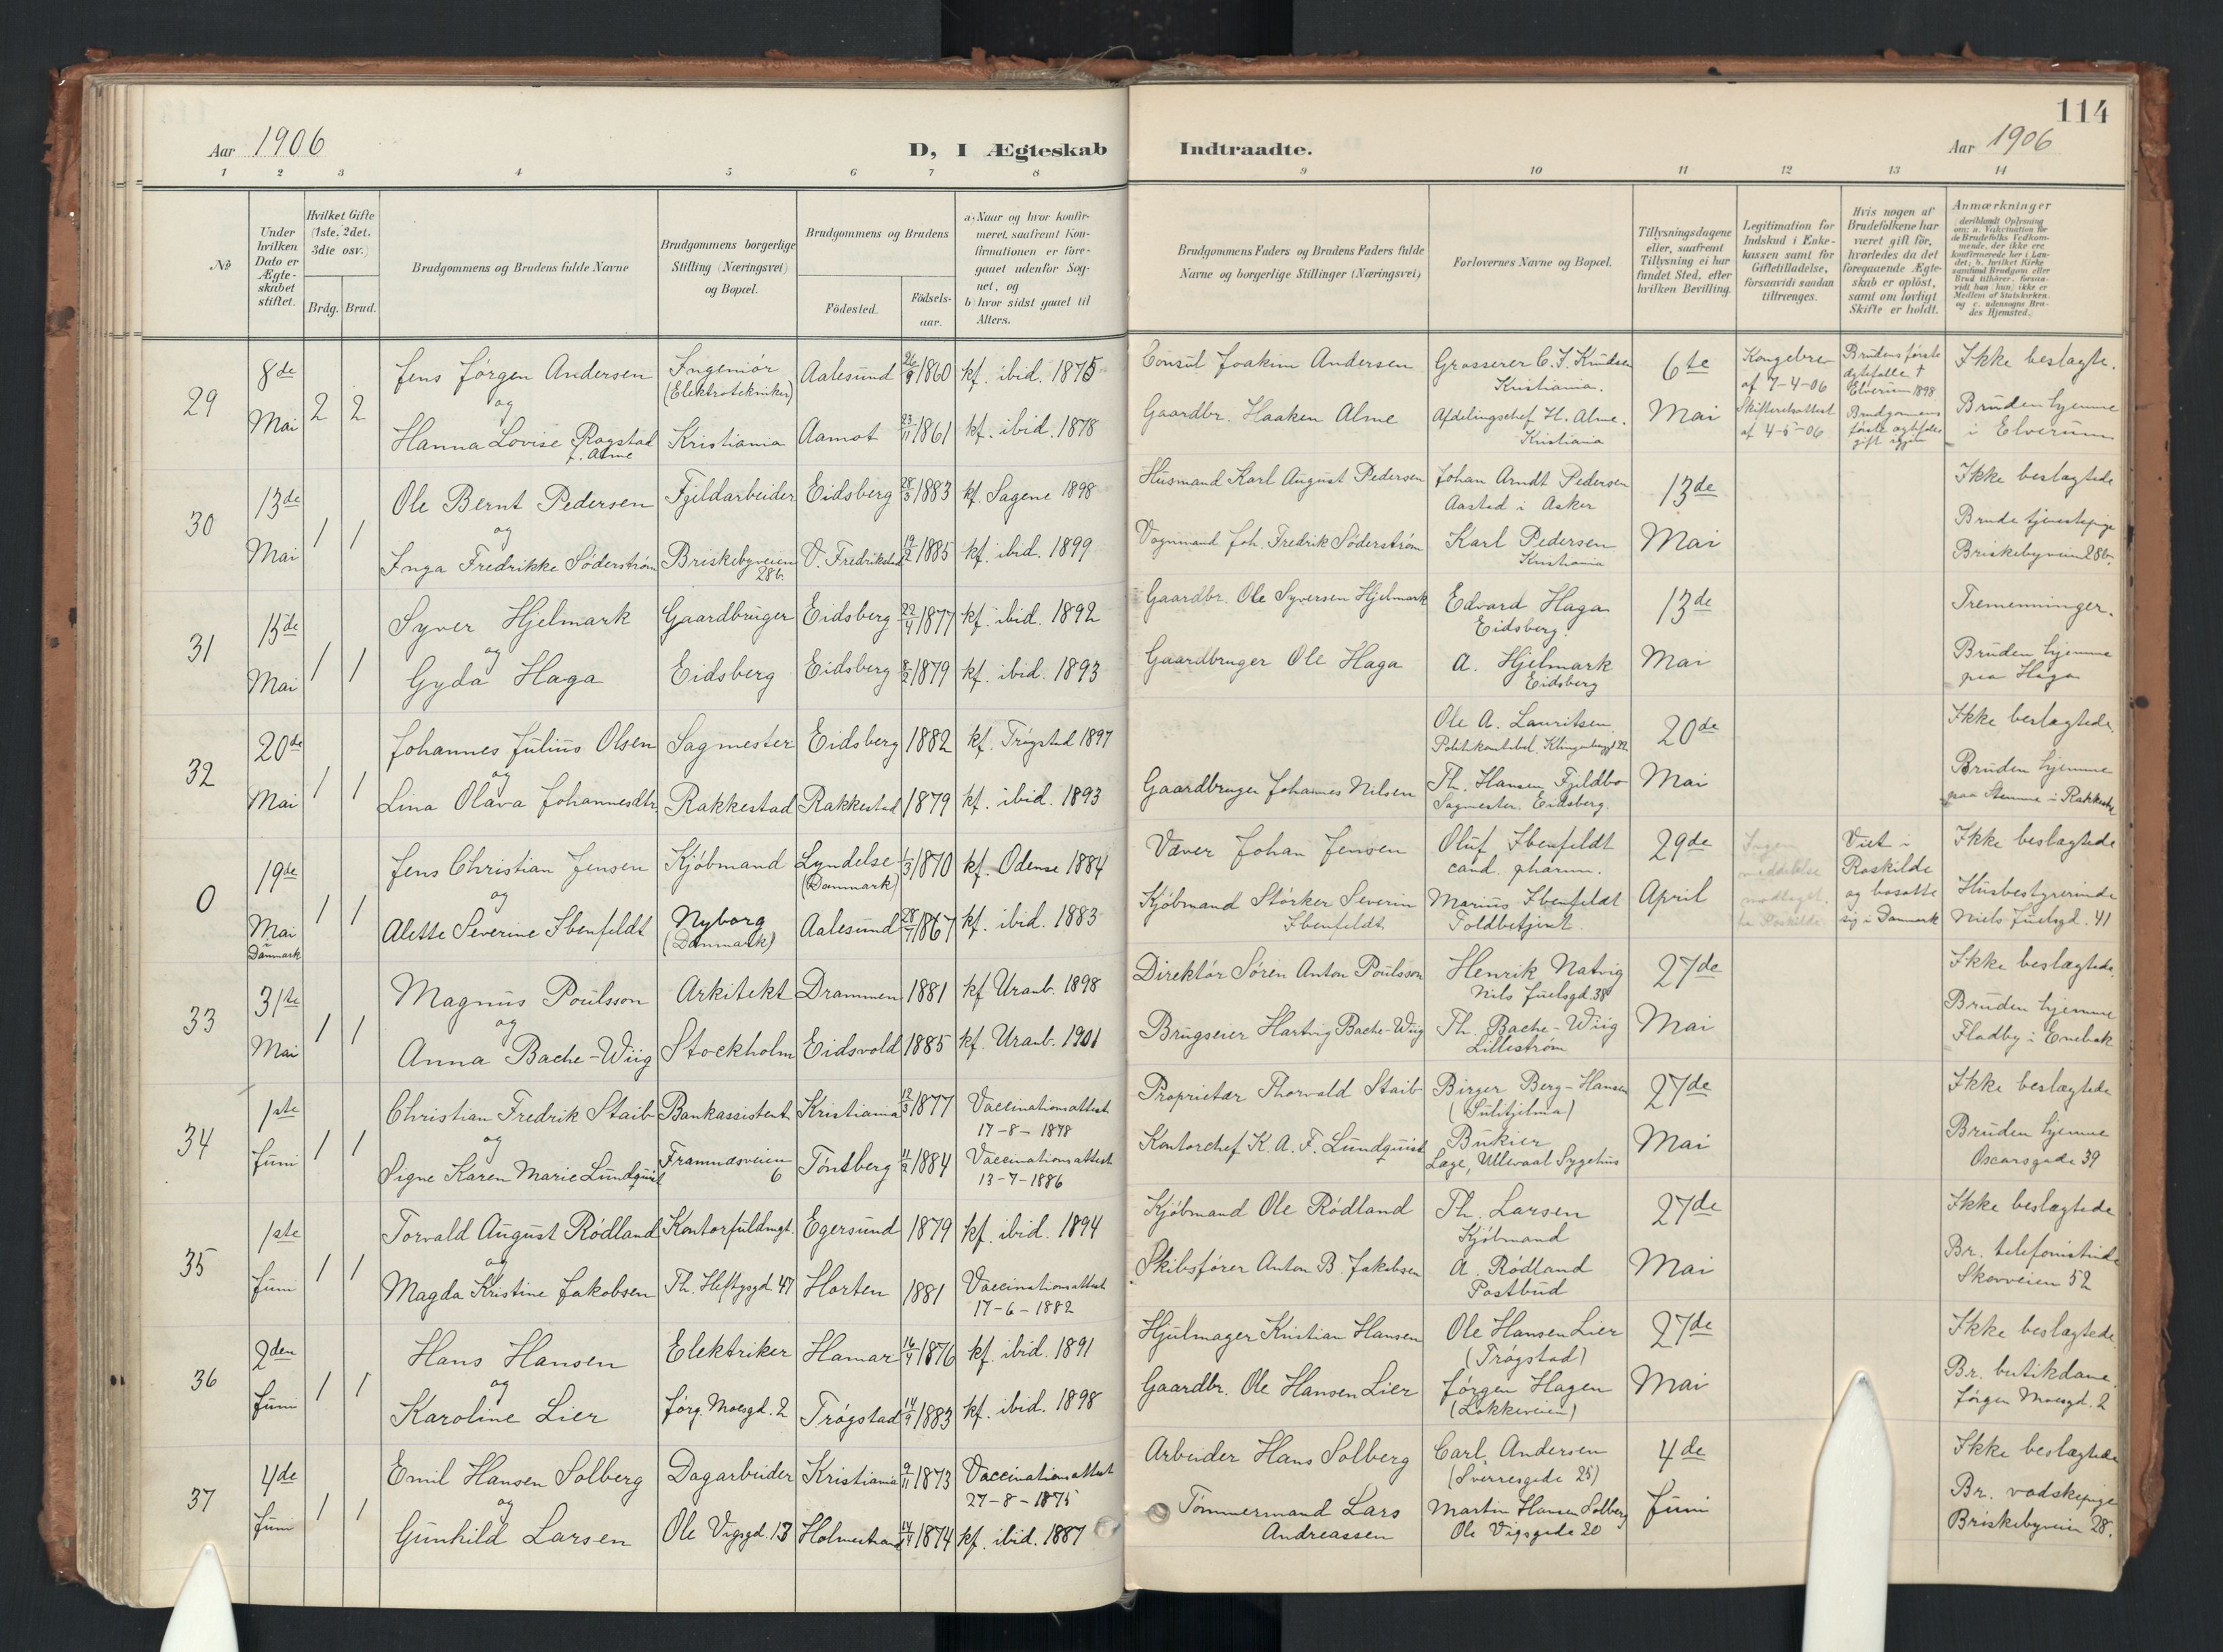 Aar 1906
D, I Ægteskab
1 2 3 4 5 6 7 8
№
Under hvilken Dato er Ægteskabet stiftet.
Hvilket Gifte (1ste, 2det. 3die osv.)
Brdg. Brud.
Brudgommens og Brudens fulde Navne
Brudgommens borgerlige Stilling (Næringsvei) og Bopæl.
Brudgommens og Brudens
Födested.
Födsels-aar.
a: Naar og hvor konfirmeret, saafremt Konfirmationen er foregaaet udenfor Sognet, og
b) hvor sidst gaaet til Alters.
29
8de Mai
2 2
Jens Jørgen Andersen
og
Hanna Lovise Rogstad
f. Alme
Ingeniør
(Elektrotekniker)
Kristiania
Aalesund 26/9 1860 kf. ibid. 1875
Aamot 23/11 1861 kf. ibid. 1878
30
13de Mai
1 1
Ole Bernt Pedersen
og
Inga Fredrikke Søderstrøm
Fjeldarbeider
Briskebyveien
28b.
Eidsberg 28/3 1883 kf. Sagene 1898
V. Fredrikstad 19/2 1885 kf. ibid. 1899
31
15de Mai
1 1
Syver Hjelmark
og
Gyda Haga
Gaardbruger
Eidsberg
Eidsberg 22/4 1877 kf. ibid. 1892
Eidsberg 8/2 1879 kf. ibid. 1893
32
20de Mai
1 1
Johannes Julius Olsen
og
Lina Olava Johannesdtr.
Sagmester
Rakkestad
Eidsberg 1882 kf. Trøgstad 1897
Rakkestad 1879 kf. ibid. 1893
0
19de Mai
Danmark
1 1
Jens Christian Jensen
og
Alette Severine Ibenfeldt
Kjøbmand
Nyborg
(Danmark)
Lyndelse
(Danmark)
1/3 1870 kf. Odense 1884
Aalesund 28/7 1867 kf. ibid. 1883
33
31te Mai
1 1
Magnus Poulsson
og
Anna Bache-Wiig
Arkitekt
Stockholm
Drammen 1881 kf Uranb. 1898
Eidsvold 1885 kf. Uranb. 1901
34
1ste Juni
1 1
Christian Fredrik Staib
og
Signe Karen Marie Lundquist
Bankassistent
Framnæsveien
6
Kristiania 12/3 1877 Vaccinationsattest
17-8-1878
Tønsberg 4/2 1884 Vaccinationsattest
13-7-1886
35
1ste Juni
1 1
Torvald August Rødland
og
Magda Kristine Jakobsen
Kontorfuldmgt.
Th. Heftyesgd 47
Egersund 1879 kf. ibid. 1894
Horten 1881 Vaccinationsattest
17-6-1882
36
2den Juni
1 1
Hans Hansen
og
Karoline Lier
Elektriker
Jørg. Moesgd. 2
Hamar 16/4 1876 kf. ibid. 1891
Trøgstad 14/9 1883 kf. ibid. 1898
37
4de Juni
1 1
Emil Hansen Solberg
og
Gunhild Larsen
Dagarbeider
Ole Vigsgd. 13
Kristiania 9/11 1873 Vaccinationsattest
27-8-1875
Holmestrand 14/4 1874 kf. ibid. 1887
114
Indtraadte.
Aar 1906
9 10 11 12 13 14
Brudgommens Faders og Brudens Faders fulde Navne og borgerlige Stillinger (Næringsvei)
Forlovernes Navne og Bopæl.
Tillysningsdagene eller, saafremt Tillysning ei har fundet Sted, efter hvilken Bevilling.
Legitimation for Indskud i Enkekassen samt for Giftetilladelse, forsaavidt saadan tiltrænges.
Hvis nogen af Brudefolkene har været gift før, hvorledes da det foregaaende Ægteskab er opløst, samt om lovligt Skifte er holdt.
Anmærkninger
(deriblandt Oplysning om: a. Vakcination for de Brudefolks Vedkommende, der ikke ere konfirmerede her i Landet; b. hvilket Kirkesamfund Brudgom eller Brud tilhører, forsaavidt han (hun) ikke er Medlem af Statskirken, og c. udensogns Brudes Hjemsted.)
Consul Joakim Andersen
Gaardbr. Haaken Alme
Grosserer C. F. Knudsen
Kristiania.
Afdelingschef H. Alme.
Kristiania
6te Mai
Kongebrev
af 7-4-06
Skifteretsattest
af 4-5-06
Brudens første
ægtefælle †
Elverum 1898
Brudgommens
første ægtefælle
gift
Ikke beslægte.
Bruden hjemme
i Elverum
Husmand Karl August Pedersen
Vognmand Joh. Fredrik Søderstrøm
Johan Arndt Pedersen
Aastad i Asker
Karl Pedersen
Kristiania
13de Mai
Ikke beslægtede
Brude tjenestepige
Briskebyveien 28b.
Gaardbr. Ole Syversen Hjelmark
Gaardbruger Ole Haga
Edvard Haga
Eidsberg.
A. Hjelmark
Eidsberg
13de Mai
Tremenninger.
Bruden hjemme
paa Haga
Gaardbruger Johannes Nilsen
Ole A. Lauritsen
Th. Hansen Fjeldbo
Sagmester. Eidsberg.
20de Mai
Ikke beslægtede.
Bruden hjemme
paa Stemme i Rakkestad
Væver Johan Jensen
Kjøbmand Størker Severin
Ibenfeldt
Oluf Ibenfeldt
cand. pharm.
Marius Ibenfeldt
Toldbetjent.
29de April
Ingen
meddelelse
modtaget.
fra Roskilde
Viet i
Roskilde
og bosatte
sig i Danmark
Ikke beslægtede
Husbestyrerinde
Niels Juelsgd. 41
Direktør Søren Anton Poulsson
Brugseier Hartvig Bache-Wiig
Henrik Natvig
Nils Juelsgd. 38
Th. Bache-Wiig
Lillestrøm
27de Mai
Ikke beslægtede
Bruden hjemme
Fladby i Enebak
Proprietær Thorvald Staib
Kontorchef K. A. F. Lundquist
Birger Berg-Hansen
(Sulitjelma)
Bukier
Læge, Ullevaal Sygehus
27de Mai
Ikke beslægtede
Bruden hjemme
Oscarsgade 39
Kjøbmand Ole Rødland
Skibsfører Anton B. Jakobsen
Th. Larsen
Kjøbmand
A. Rødland
Postbud
27de Mai
Ikke beslægtede
Br. telefonistinde
Skovveien 52
Hjulmager Kristian Hansen
Gaardbr. Ole Hansen Lier
Ole Hansen Lier
(Trøgstad)
Jørgen Hagen
(Løkkeveien)
27de Mai
Ikke beslægtede.
Br. butikdame.
Jørgen Moesgd. 2
Arbeider Hans Solberg
Tømmermand Lars
Andreassen
Carl. Andersen
(Sverresgade 25)
Martin Hansen Solberg
Ole Vigsgade 20
4de Juni
Ikke beslægtede
Br. vadskepige
Briskebyveien 28.